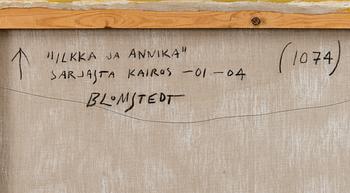 "ILKKA JA ANNIKA" (1074)
SARJASTA KAIROS -01-04
BLOMSTEDT